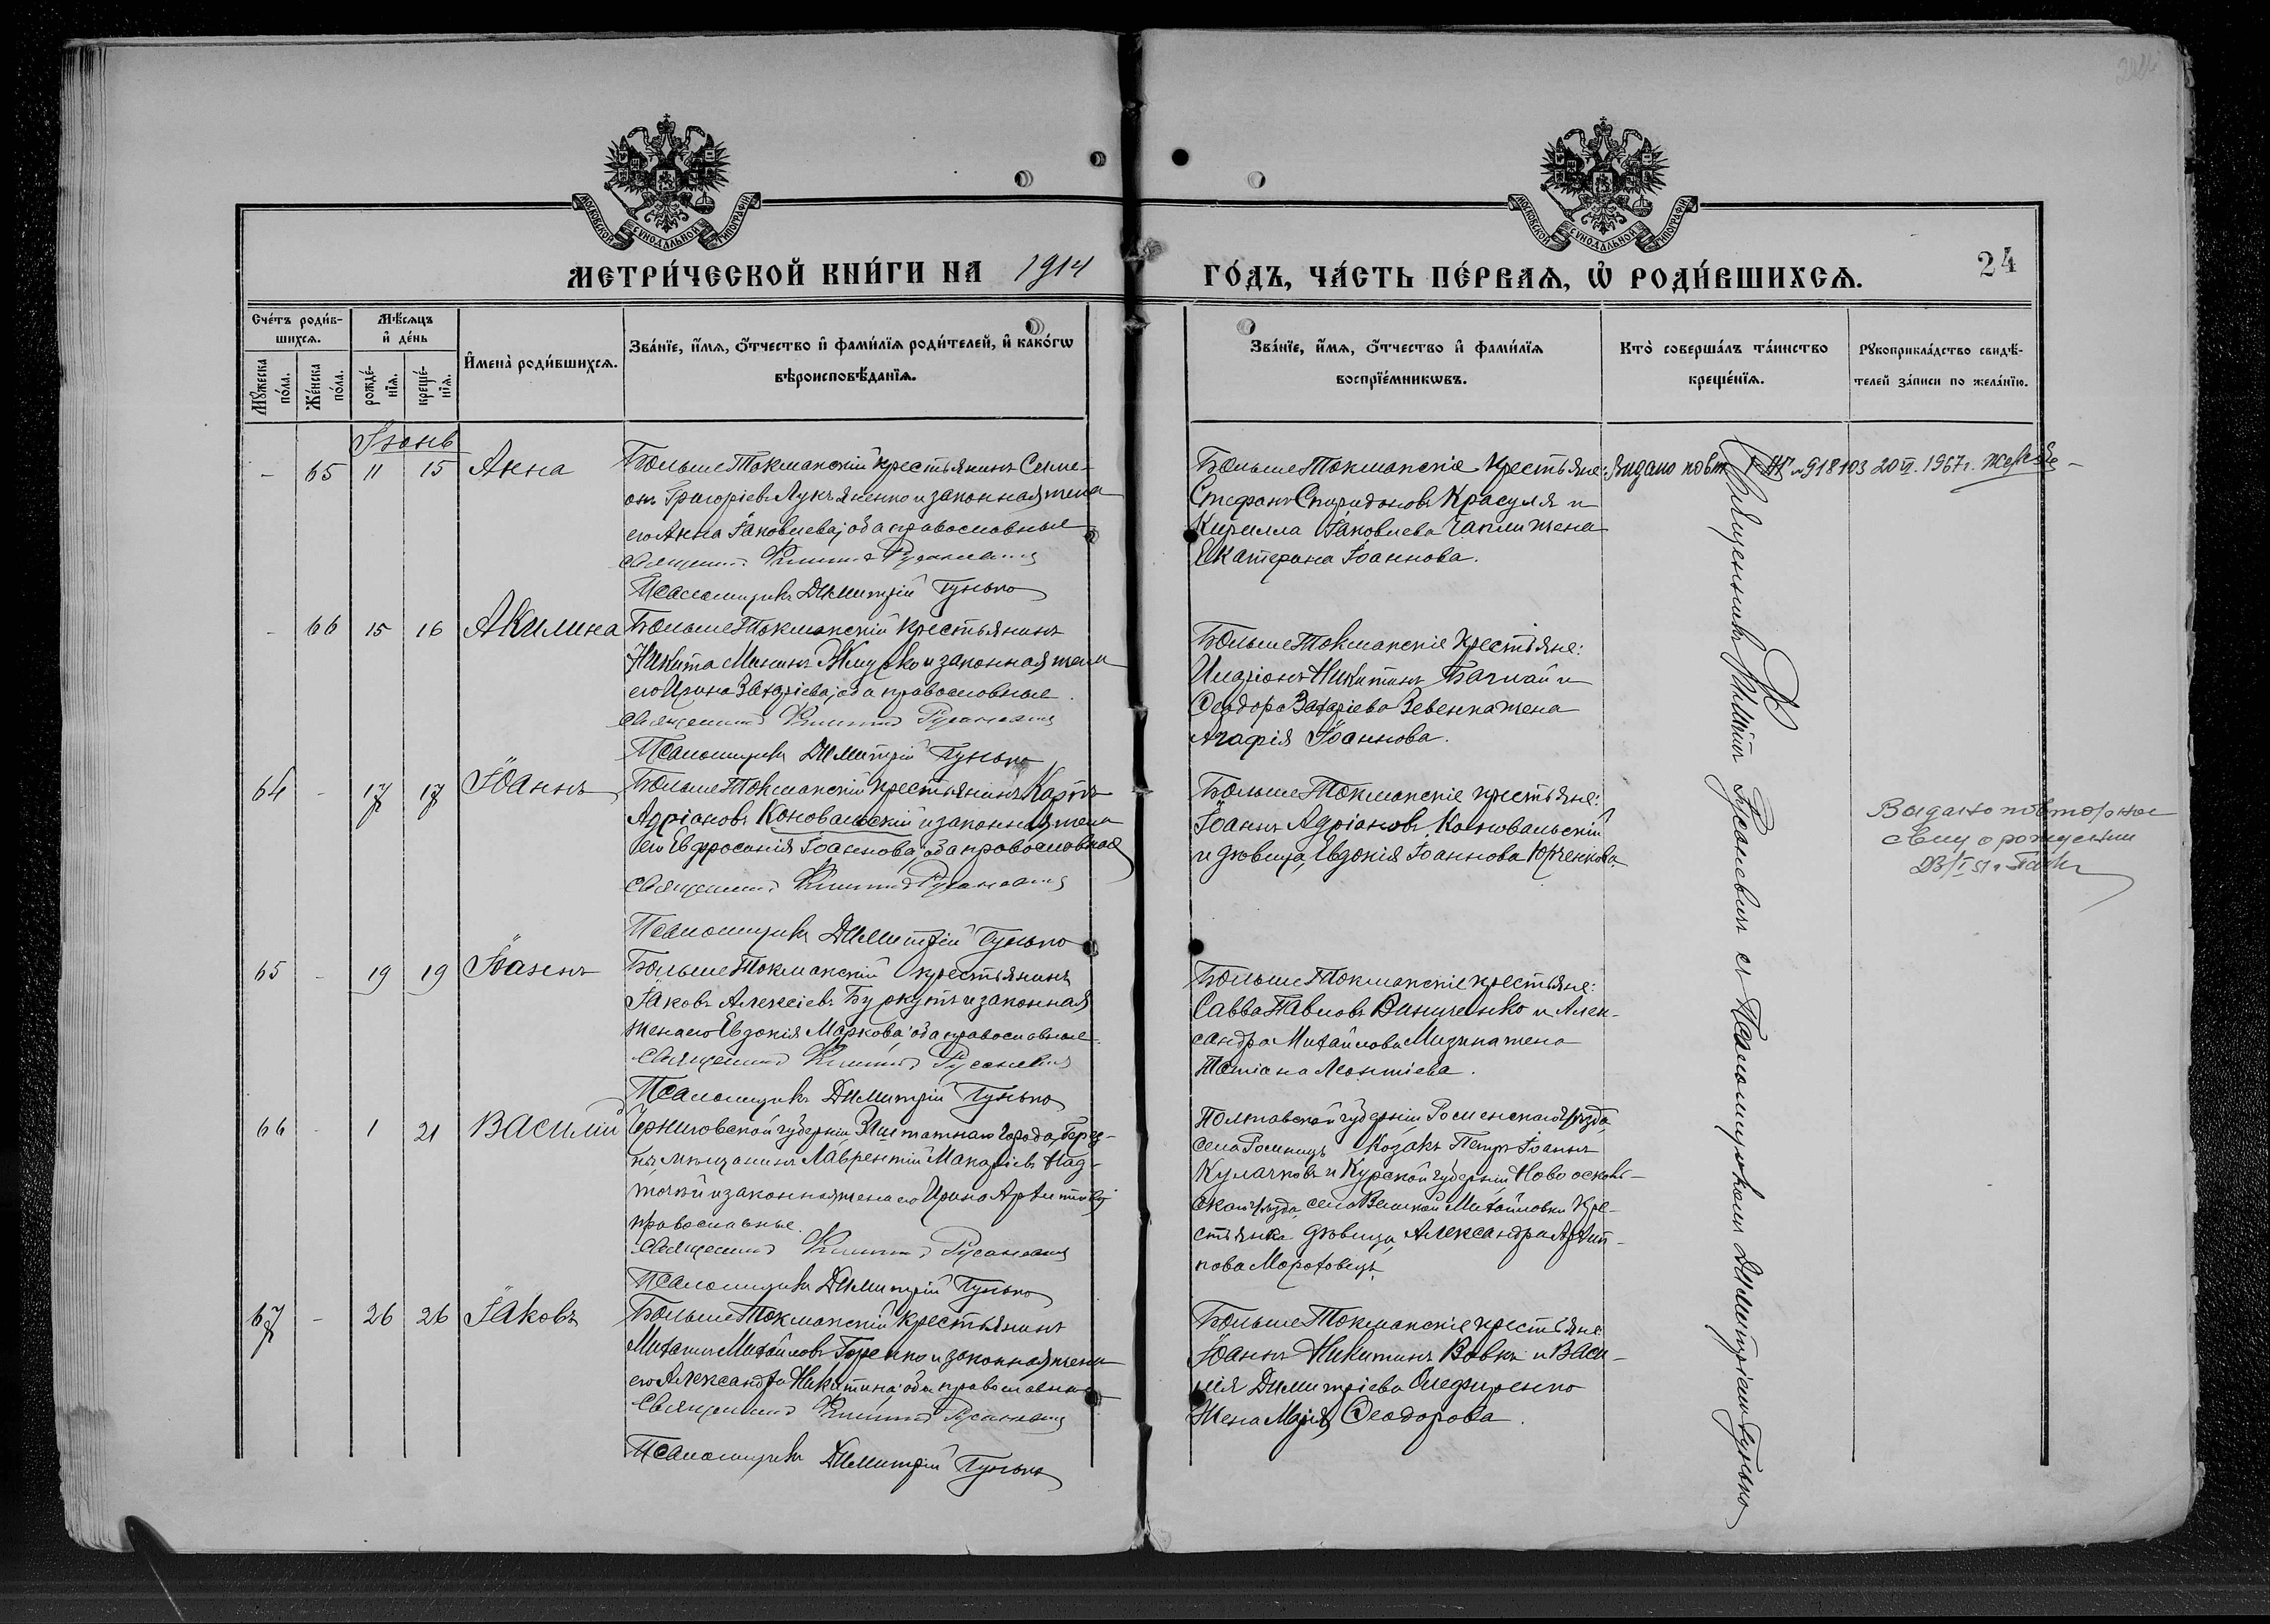 24
МОСКОВСКОЙ СУНОДАЛЬНОЙ ТИПОГРАФІИ
МОСКОВСКОЙ СУНОДАЛЬНОЙ ТИПОГРАФІИ
МЕТРИ́ЧЕСКОЙ КНИ́ГИ НА 1914 ГО́ДЪ, ЧА́СТЬ ПЕ́РВАѦ, Ѡ РОДИ́ВШИХСѦ.
Сче́тъ роди́в-
шихсѧ.
Мꙋ́жеска по́ла.
Же́нска по́ла.
Мѣ́сѧцъ
и҆ де́нь
рожде́-
нїѧ.
креще́-
нїѧ.
И҆мена̀ роди́вшихсѧ.
Зва́нїе, и҆́мѧ, ѻ҆́тчество и҆ фами́лїѧ роди́телей, и҆ како́гѡ
вѣроисповѣ́данїѧ.
Зва́нїе, и҆́мѧ, ѻ҆́тчество и҆ фами́лїѧ
воспрїе́мникѡвъ.
Кто̀ соверша́лъ та́инство
креще́нїѧ.
Рꙋкоприкла́дство свидѣ́-
телей за́писи по жела́нїю.
Іюнь
- 65 11 15 Анна
БольшеТокмакскій крестьянинъ Симе-
онъ Григоріевъ Лукьяненко и законная жена
его Анна Іаковлева; оба православные
Священникъ Русаневичъ
Псаломщикъ Димитрій Гунько
БольшеТокмакскіе крестьяне:
Стефанъ Спиридоновъ Красуля и
Кирилла Іаковлева Чапли жена
Екатерина Іоаннова.
Выдано повт. 918103 20 VI. 1967 г.
- 66 15 16 Акилина
БольшеТокмакскій крестьянинъ
Никита Мининъ Жмурко и законная жена
его Ирина Захаріева; оба православные.
Священникъ Русаневичъ
Псаломщикъ Димитрій Гунько
БольшеТокмакскіе крестьяне:
Иларіонъ Никитинъ Багмай и
Ѳеодора Захаріева Зевенка жена
Агафія Іоаннова.
64 - 17 17 Іоаннъ
БольшеТокмакскій крестьянинъ Карпъ
Адріановъ Коновальскій и законная жена
его Евфросинія Іоаннова; оба православные
Священникъ Русаневичъ
Псаломщикъ Димитрій Гунько
БольшеТокмакскіе крестьяне:
Іоаннъ Адріановъ Коновальскій
и дѣвица Евдокія Іоаннова Юрченкова.
Выдано повторное
свид о рождении
23/I 51 г.
65 - 19 19 Іоаннъ
БольшеТокмакскій крестьянинъ
Іаковъ Алексіевъ Буркутъ и законная
жена его Евдокія Маркова; оба православные.
Священникъ Русаневичъ
Псаломщикъ Димитрій Гунько
БольшеТокмакскіе крестьяне:
Савва Павловъ Винниченко и Алек-
сандра Михайлова Мизина жена
Татіана Леонтіева.
66 - 1 21 Василій
Черниговской губерніи Заштатнаго города Берез-
ны, мѣщанинъ Лаврентій Макаріевъ Над-
точій и законная жена его Ирина Архиппова;
православные.
Священникъ Русаневичъ
Псаломщикъ Димитрій Гунько
Полтавской губерніи, Роменскаго уѣзда,
села Козакъ Петръ Іоанновъ
Кулачковъ и Курской губерніи Новооскол-
скаго уѣзда, села Великой Михайловки Кре-
стьянка дѣвица Александра Архип-
пова Мороховецъ.
67 - 26 26 Іаковъ
БольшеТокмакскій крестьянинъ
Михаилъ Михайловъ Горенко и законная жена
его Александра Никитина; оба православные
Священникъ Русаневичъ
Псаломщикъ Димитрій Гунько
БольшеТокмакскіе крестьяне
Іоаннъ Никитинъ Вовкъ и Васи-
лія Димитріева Олефиренко
жена Марія Ѳеодорова.
Священникъ Русаневичъ съ Псаломщикомъ Димитріемъ Гунько